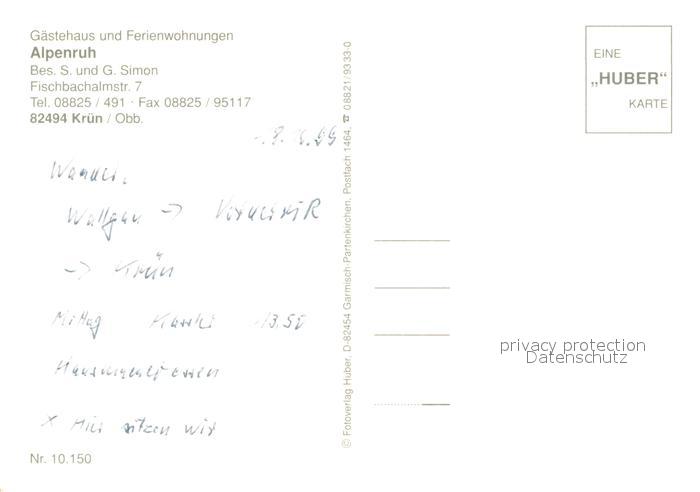 Gästehaus und Ferienwohnungen
Alpenruh
Bes. S. und G. Simon
Fischbachalmstr. 7
Tel. 08825 / 491 · Fax 08825 / 95117
82494 Krün / Obb.
Wallgau →
→ Krün
Mittag 13.50
x Hier sitzen wir
Nr. 10.150
© Fotoverlag Huber, D-82454 Garmisch-Partenkirchen, Postfach 1464, ☎ 08821/9333-0
EINE
„HUBER“
KARTE
privacy protection
Datenschutz